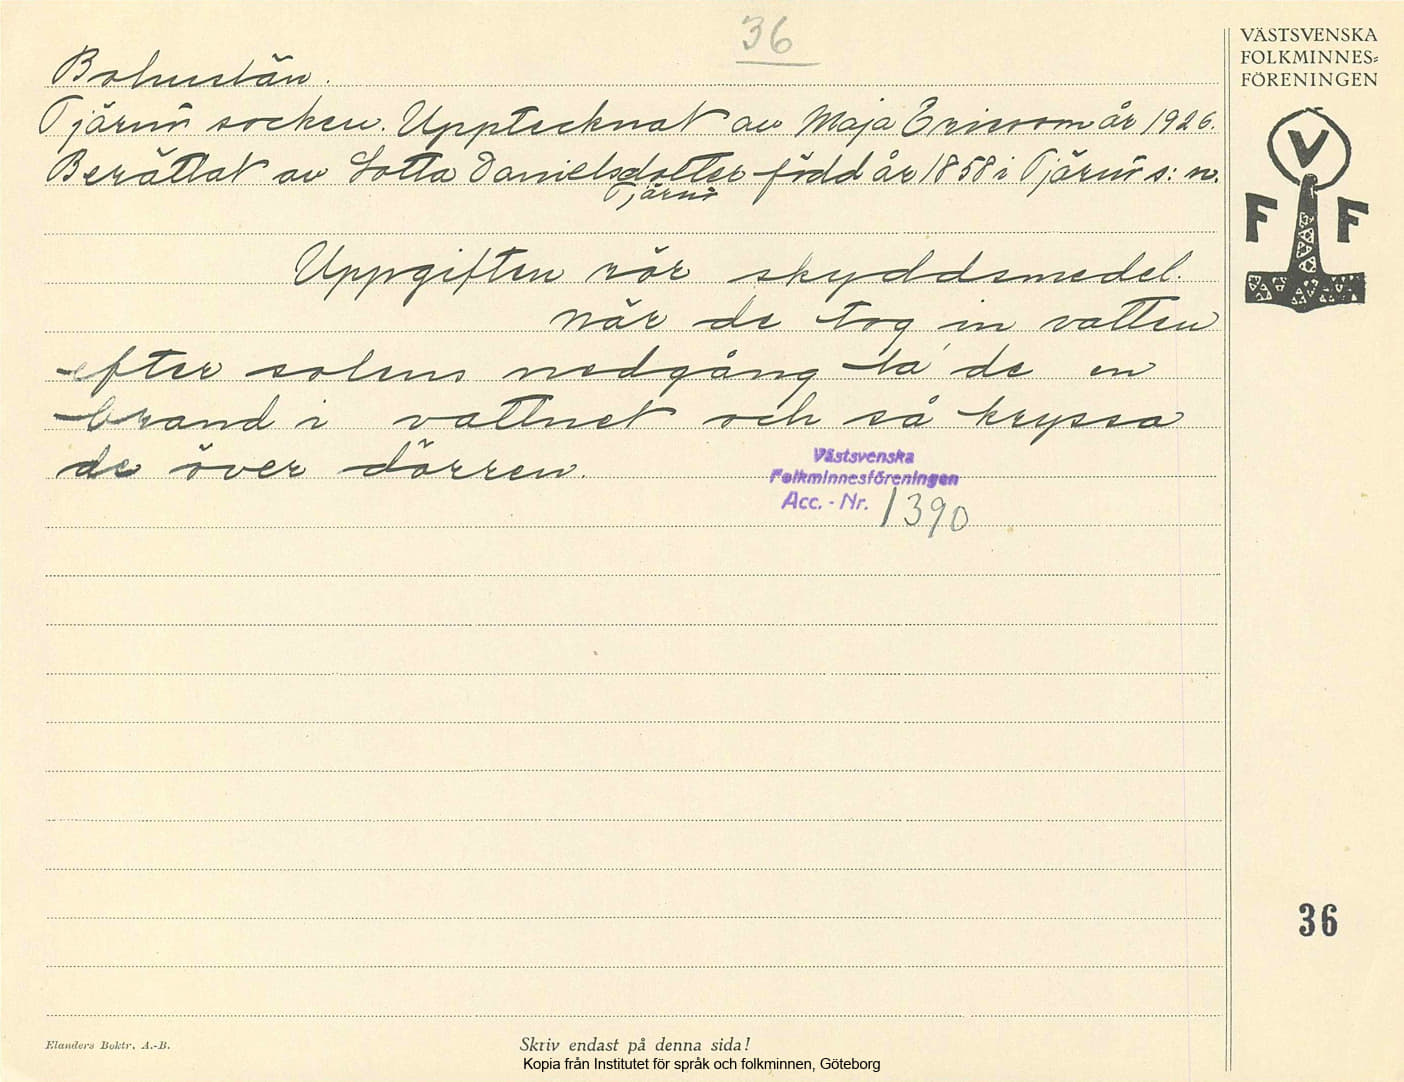 36
Bohuslän.
Tjärnö socken. Upptecknat av Maja Ericsson år 1926.
Berättat av Lotta Danielsdotter född år 1858 i Tjärnö s:n.
Tjärnö
Uppgiften rör skyddsmedel.
När de tog in vatten
efter solens nedgång la de en
brand i vattnet och så kryssa
de över dörren.
Västsvenska
Folkminnesföreningen
Acc. - Nr. 1390
VÄSTSVENSKA
FOLKMINNES=
FÖRENINGEN
V
F F
36
Elanders Boktr. A.-B.
Skriv endast på denna sida!
Kopia från Institutet för språk och folkminnen, Göteborg